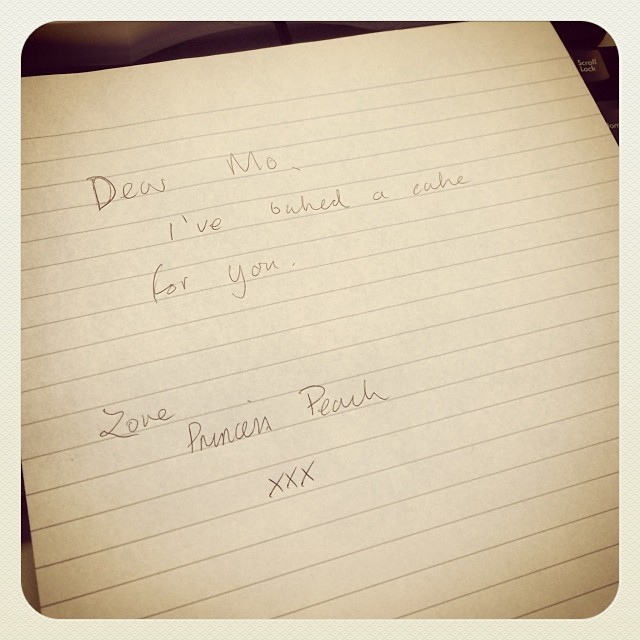 Scroll
Lock
Dear Mo,
I've baked a cake
for you.
Love
Princess Peach
xxx